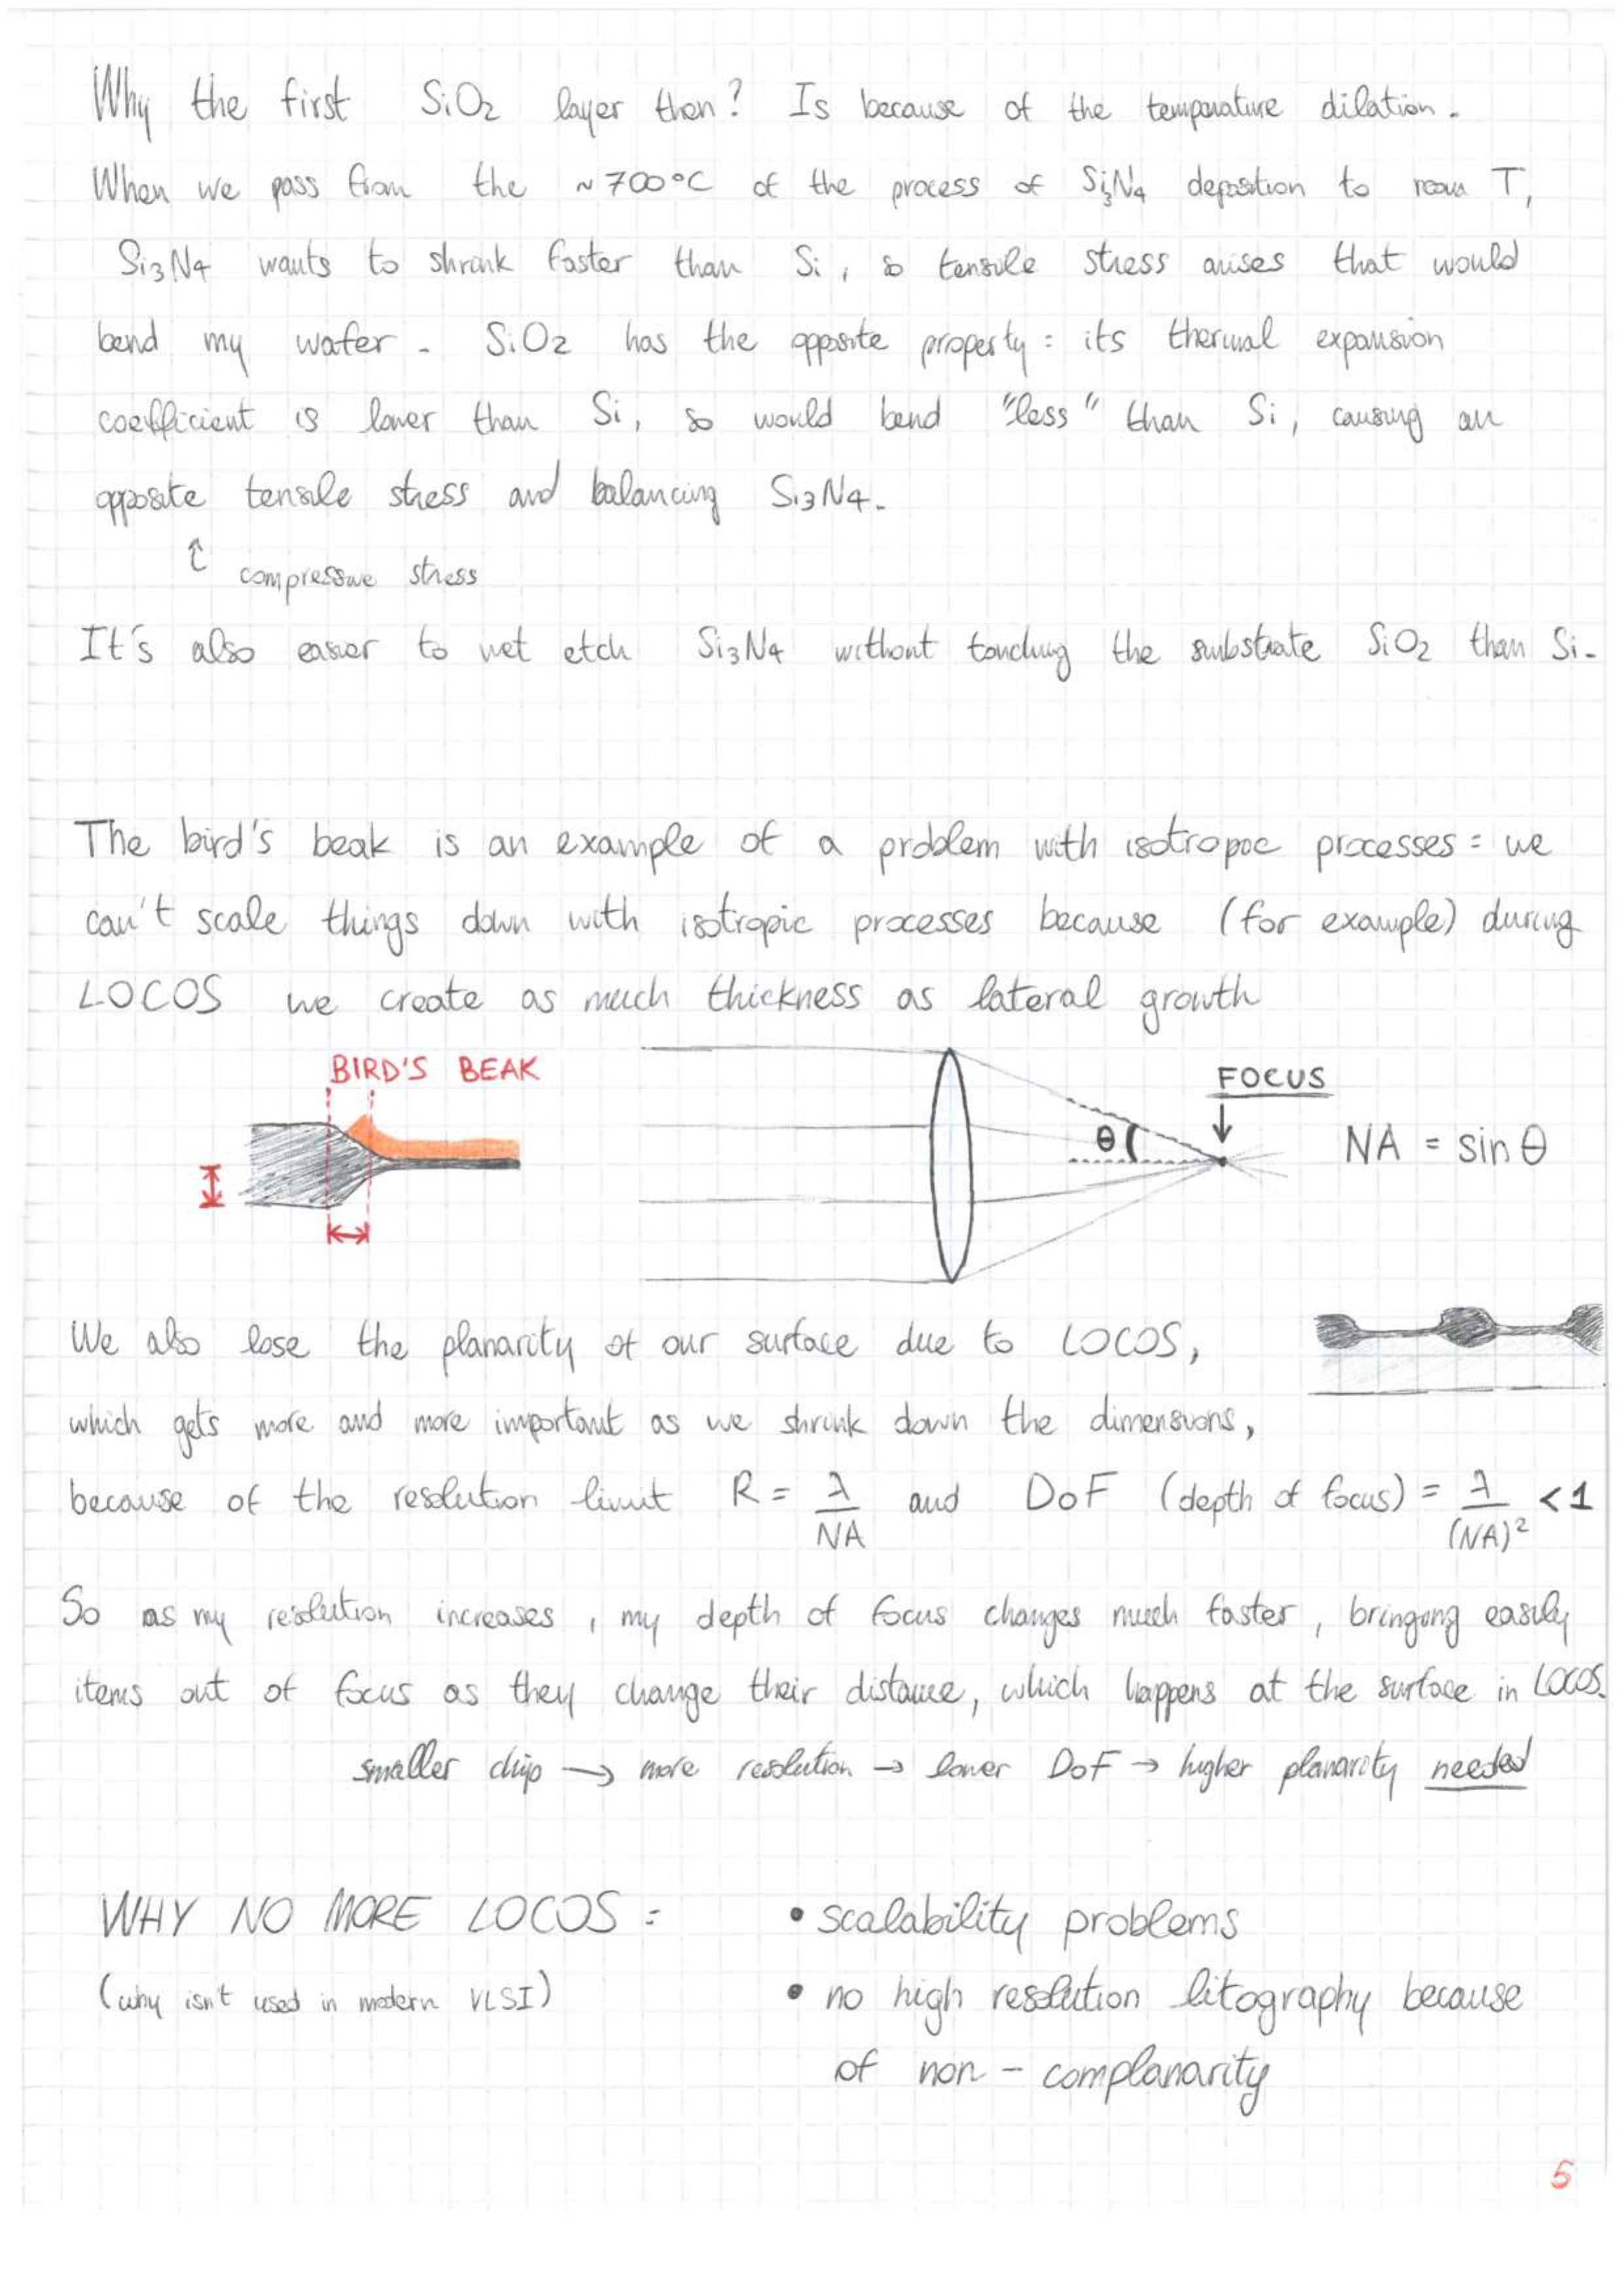 Why the first SiO2 layer then? Is because of the temperature dilation.
When we pass from the ~700°C of the process of Si3N4 deposition to room T,
Si3N4 wants to shrink faster than Si, so tensile stress arises that would
bend my wafer. SiO2 has the opposite property: its thermal expansion
coefficient is lower than Si, so would bend "less" than Si, causing an
opposite tensile stress and balancing Si3N4.
↑ compressive stress
It's also easier to wet etch Si3N4 without touching the substrate SiO2 than Si.
The bird's beak is an example of a problem with isotropic processes: we
can't scale things down with isotropic processes because (for example) during
LOCOS we create as much thickness as lateral growth
BIRD'S BEAK
FOCUS
θ
NA = sin θ
We also lose the planarity of our surface due to LOCOS,
which gets more and more important as we shrink down the dimensions,
because of the resolution limit R = λ/NA and DoF (depth of focus) = λ/(NA)² < 1
So as my resolution increases, my depth of focus changes much faster, bringing easily
items out of focus as they change their distance, which happens at the surface in LOCOS.
smaller chip → more resolution → lower DoF → higher planarity needed
WHY NO MORE LOCOS:
(why isn't used in modern VLSI)
• scalability problems
• no high resolution litography because
of non-complanarity
5